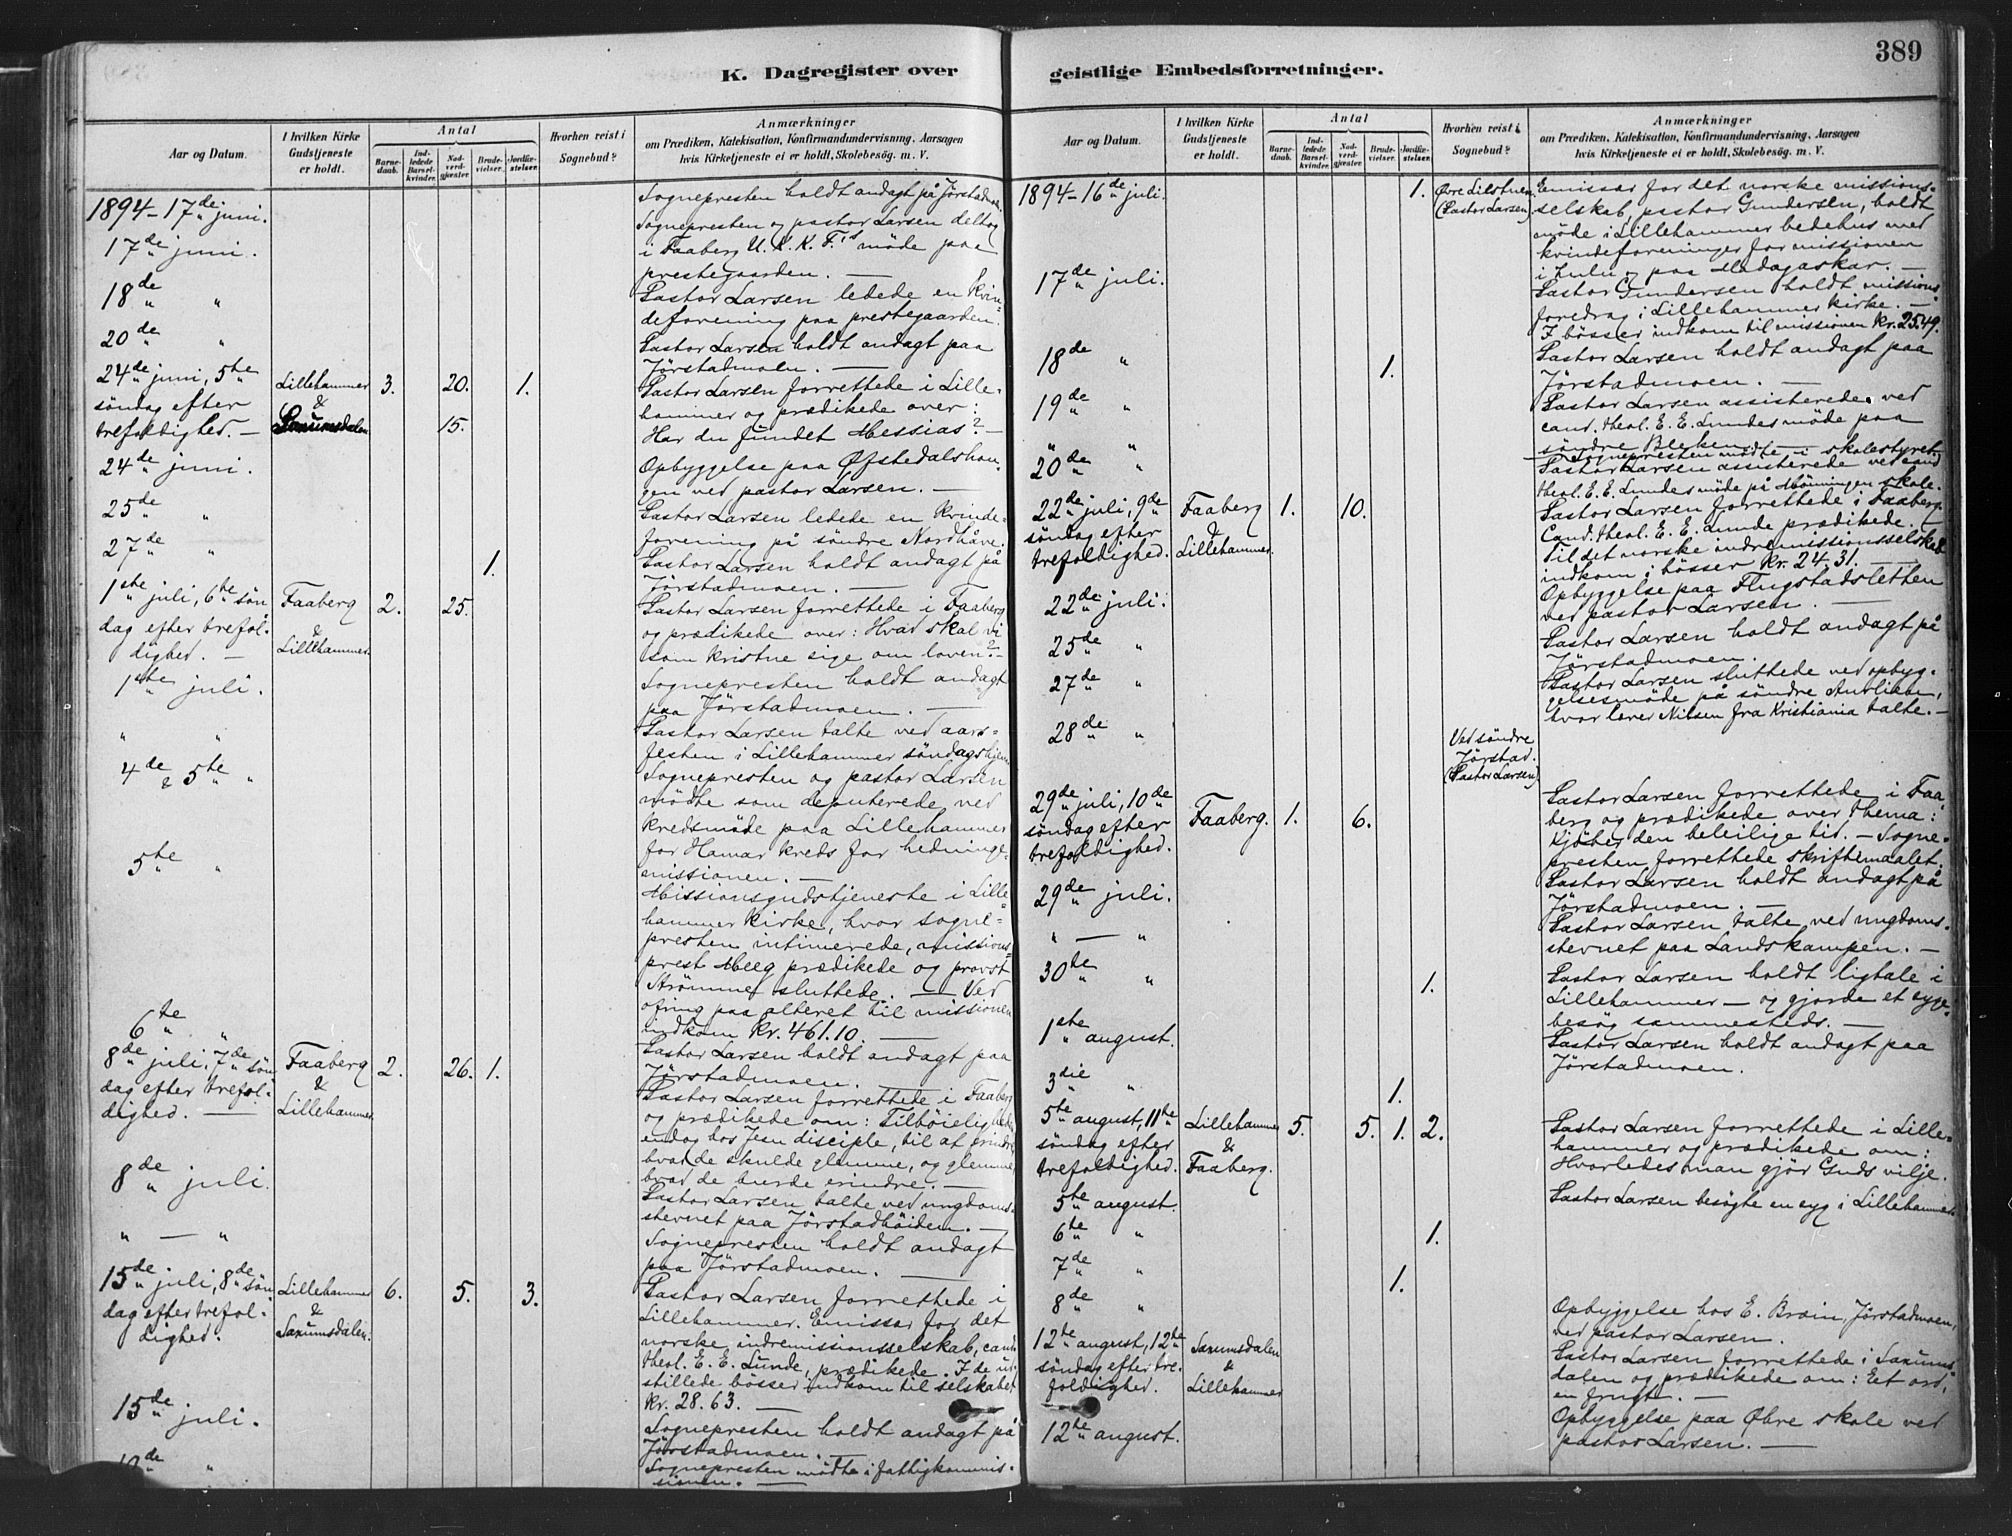 389
K. Dagregister over
Aar og Datum.
I hvilken Kirke
Gudstjeneste
er holdt.
Antal
Barne-
daab.
Ind-
ledede
Barsel-
kvinder.
Nad-
verd-
gjæster.
Brude-
vielser.
Jordfæ-
stelser.
Hvorhen reist i
Sognebud?
Anmærkninger
om Prædiken, Katekisation, Konfirmandundervisning, Aarsagen
hvis Kirketjeneste ei er holdt, Skolebesøg. m. V.
1894 - 17de juni.
Sognepresten holdt andagt på Jörstadmoen
17de juni.
Sognepresten og pastor Larsen deltog
i Faaberg U. K. K. F.'s möde paa
prestegaarden. —
18de "
Pastor Larsen ledede en kvin-
deforening paa prestegaarden.
20de "
Pastor Larsen holdt andagt paa
Jörstadmoen. —
24de juni, 5te
söndag efter
trefoldighed. —
Lillehammer
&
Saxumsdalen
3. 20. 1.
15.
Pastor Larsen forrettede i Lille-
hammer og prædikede over:
Har du fundet Messias? —
24de juni.
Opbyggelse paa Øfstedalshau-
gen ved pastor Larsen. —
25de "
Pastor Larsen ledede en kvinde-
forening på söndre Nordhåve.
27de "
1.
Pastor Larsen holdt andagt på
Jörstadmoen. —
1ste juli, 6te sön
dag efter trefol-
dighed. —
Faaberg
&
Lillehammer
2. 25.
Pastor Larsen forrettede i Faaberg
og prædikede over: Hvad skal vi
som kristne sige om loven? —
1ste juli.
Sognepresten holdt andagt
paa Jörstadmoen. —
" "
Pastor Larsen talte ved aars-
festen i Lillehammer söndagshjem
4de & 5te "
Sognepresten og pastor Larsen
mödte som deputerede ved
kredsmöde paa Lillehammer
for Hamar kreds for hedninge-
missionen. —
5te "
Missionsgudstjeneste i Lille-
hammer kirke, hvor sogne-
presten intimerede, missions-
prest Meeg prædikede og provst
Strömme sluttede. — Ved
ofring paa alteret til missionen
indkom kr. 461.10. —
6te "
Pastor Larsen holdt andagt paa
Jörstadmoen. —
8de juli, 7de sön
dag efter trefol-
dighed. —
Faaberg
&
Lillehammer
2. 26. 1.
Pastor Larsen forrettede i Faaberg
og prædikede om: Tilböielighed
endog hos Jesu disciple, til at erindre
hvad de skulde glemme, og glemme
hvad de burde erindre. —
8de juli.
Pastor Larsen talte ved ungdoms-
stevnet paa Jörstadhöiden. —
" — "
Sognepresten holdt andagt
paa Jörstadmoen. —
15de juli, 8de sön
dag efter trefol-
dighed.
Lillehammer
&
Saxumsdalen.
6. 5. 3.
Pastor Larsen forrettede i
Lillehammer. Emissær for det
norske indremissionsselskab, cand.
theol. E. E. Lunde, prædikede. I de ud-
stillede bösser indkom til selskabet
kr. 28.63. —
15de juli.
Sognepresten holdt andagt på
Jörstadmoen. —
Sognepresten mödte i fattigkommis-
sionen. —
geistlige Embedsforretninger.
Aar og Datum.
I hvilken Kirke
Gudstjeneste
er holdt.
Antal
Barne-
daab.
Ind-
ledede
Barsel-
kvinder.
Nad-
verd-
gjæster.
Brude-
vielser.
Jordfæ-
stelser.
Hvorhen reist i
Sognebud?
Anmærkninger
om Prædiken, Katekisation, Konfirmandundervisning, Aarsagen
hvis Kirketjeneste ei er holdt, Skolebesøg. m. V.
1894 - 16de juli.
1.
Øvre Lilstuen
(Pastor Larsen)
Emissær for det norske missions-
selskab, pastor Gundersen, holdt
möde i Lillehammer bedehus med
kvindeforeninger for missionen
i Zulu og paa Madagaskar. —
17de juli.
Pastor Gundersen holdt missions-
foredrag i Lillehammer kirke. —
I bösser indkom til missionen kr. 25.49.
18de "
1.
Pastor Larsen holdt andagt paa
Jörstadmoen. —
19de "
Pastor Larsen assisterede ved
cand. theol. E. E. Lundes möde paa
söndre Bleken
" "
Sognepresten mödte i skolestyret.
20de "
Pastor Larsen assisterede ved cand.
theol. E. E. Lundes möde på Mönningen skole.
22de juli, 9de
söndag efter
trefoldighed.
Faaberg
&
Lillehammer.
1. 10.
Pastor Larsen forrettede i Faaberg.
Cand. theol. E. E. Lunde prædikede. —
Til det norske indremissionsselskab
indkom i bösser kr. 24.31. —
22de juli.
Opbyggelse paa Flugstadsletten
ved pastor Larsen. —
25de "
Pastor Larsen holdt andagt på
Jörstadmoen.
27de "
Pastor Larsen sluttede ved opbyg-
gelsesmöde på söndre
hvor lærer Nilsen fra Kristiania talte. —
28de "
Ved söndre
Jörstad.
(Pastor Larsen)
29de juli, 10de
söndag efter
trefoldighed.
Faaberg.
1. 6.
Pastor Larsen forrettede i Faa-
berg og prædikede over thema:
Kjöber den beleilige tid. — Sogne-
presten forrettede skriftemaalet.
29de juli.
Pastor Larsen holdt andagt på
Jörstadmoen. —
" — "
Pastor Larsen talte ved ungdoms-
stevnet paa Landskampen. —
30te "
1.
Pastor Larsen holdt ligtale i
Lillehammer — og gjorde et syge-
besög sammesteds. —
1ste august.
Pastor Larsen holdt andagt paa
Jörstadmoen.
3die "
1.
5te august, 11te
söndag efter
trefoldighed.
Lillehammer
&
Faaberg.
5. 5. 1. 2.
Pastor Larsen forrettede i Lille-
hammer og prædikede om:
Hvorledes man gjör Guds vilje.
5te august.
Pastor Larsen besögte en syg i Lillehammer.
6te "
1.
7de "
1.
8de "
Opbyggelse hos E. Bræin, Jörstadmoen,
ved pastor Larsen.
12te august, 12te
söndag efter tre-
foldighed.
Saxumsdalen
&
Lillehammer
Pastor Larsen forrettede i Saxums-
dalen og prædikede om: Eet ord,
en frugt. —
12te august.
Opbyggelse paa Øbre skole ved
pastor Larsen. —